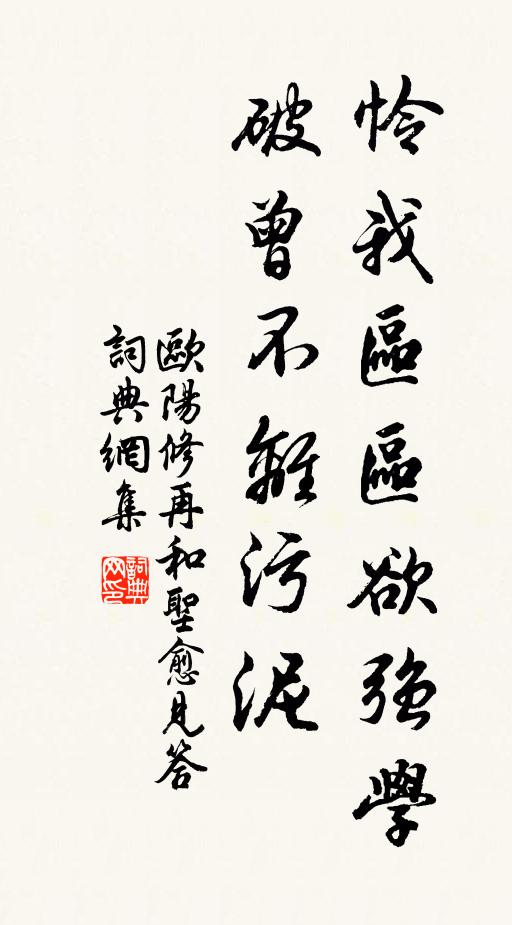 怜我區區欲強學
破曾不離污泥
歐陽修再和聖愈見答
詞典網集
詞典网印